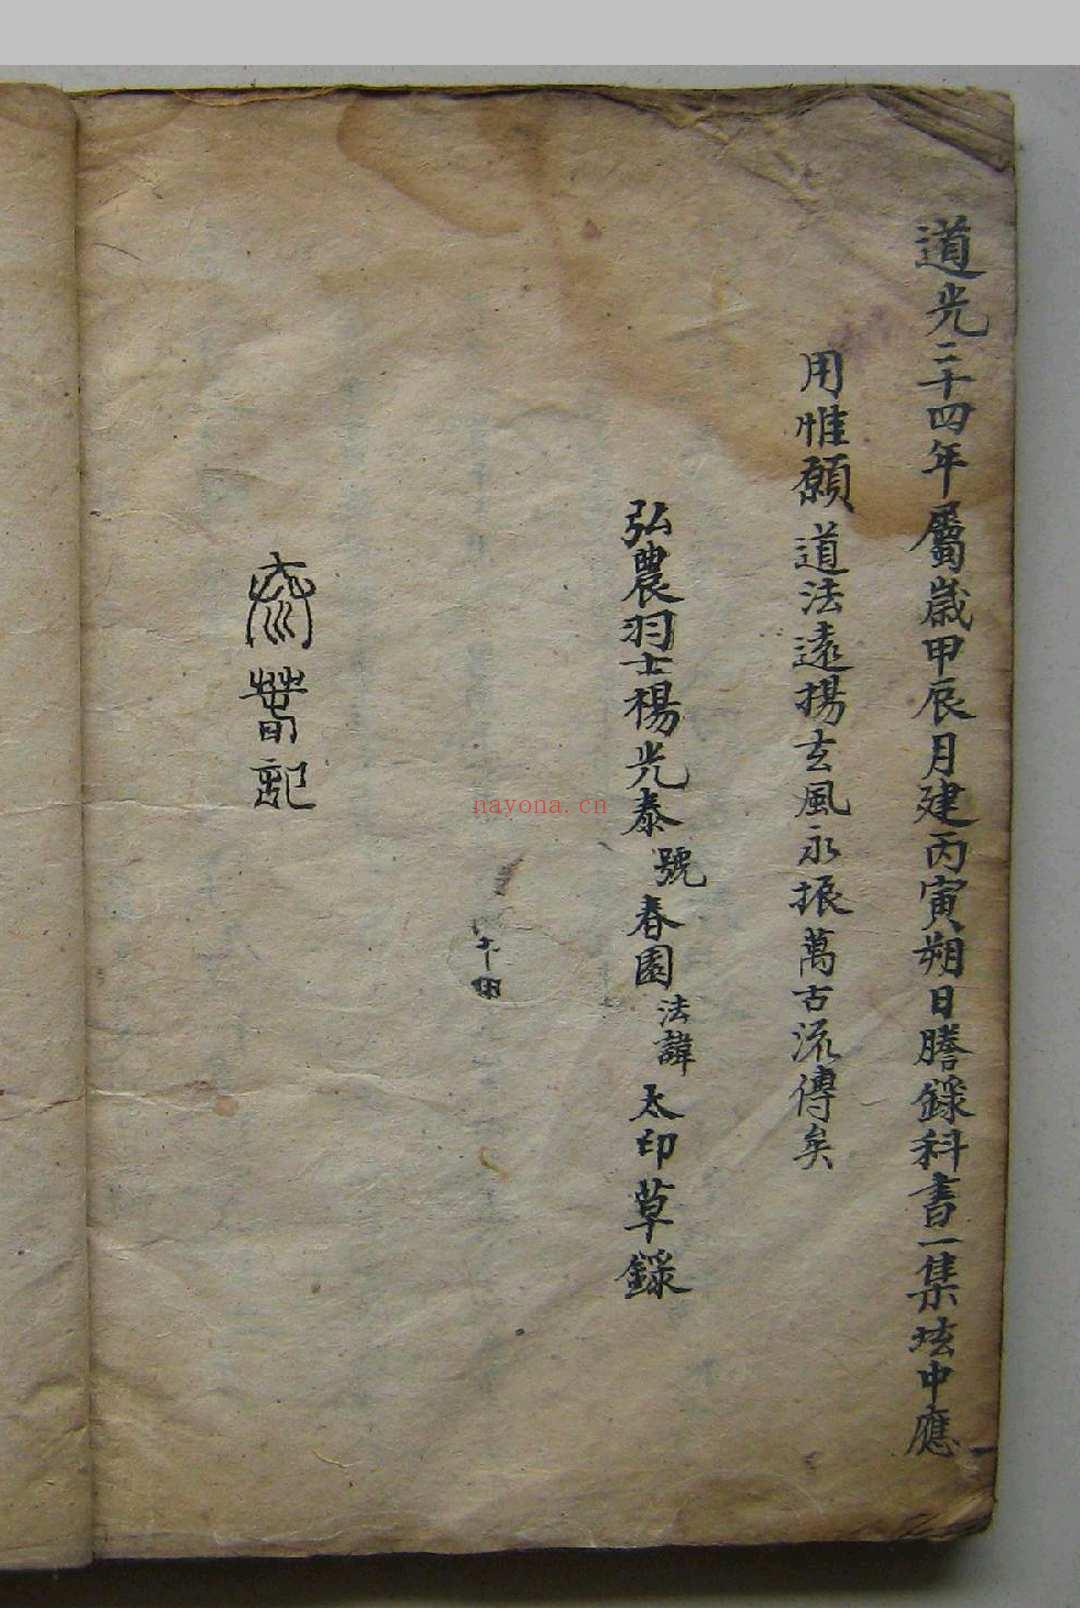 道光二十四年屬嵗甲辰月建丙寅朔日謄錄科書一集坛中應
用惟願道法遠揚玄風永振萬古流傳矣
弘農羽士楊光泰號春園法諱太印草錄
記
nayona.cn